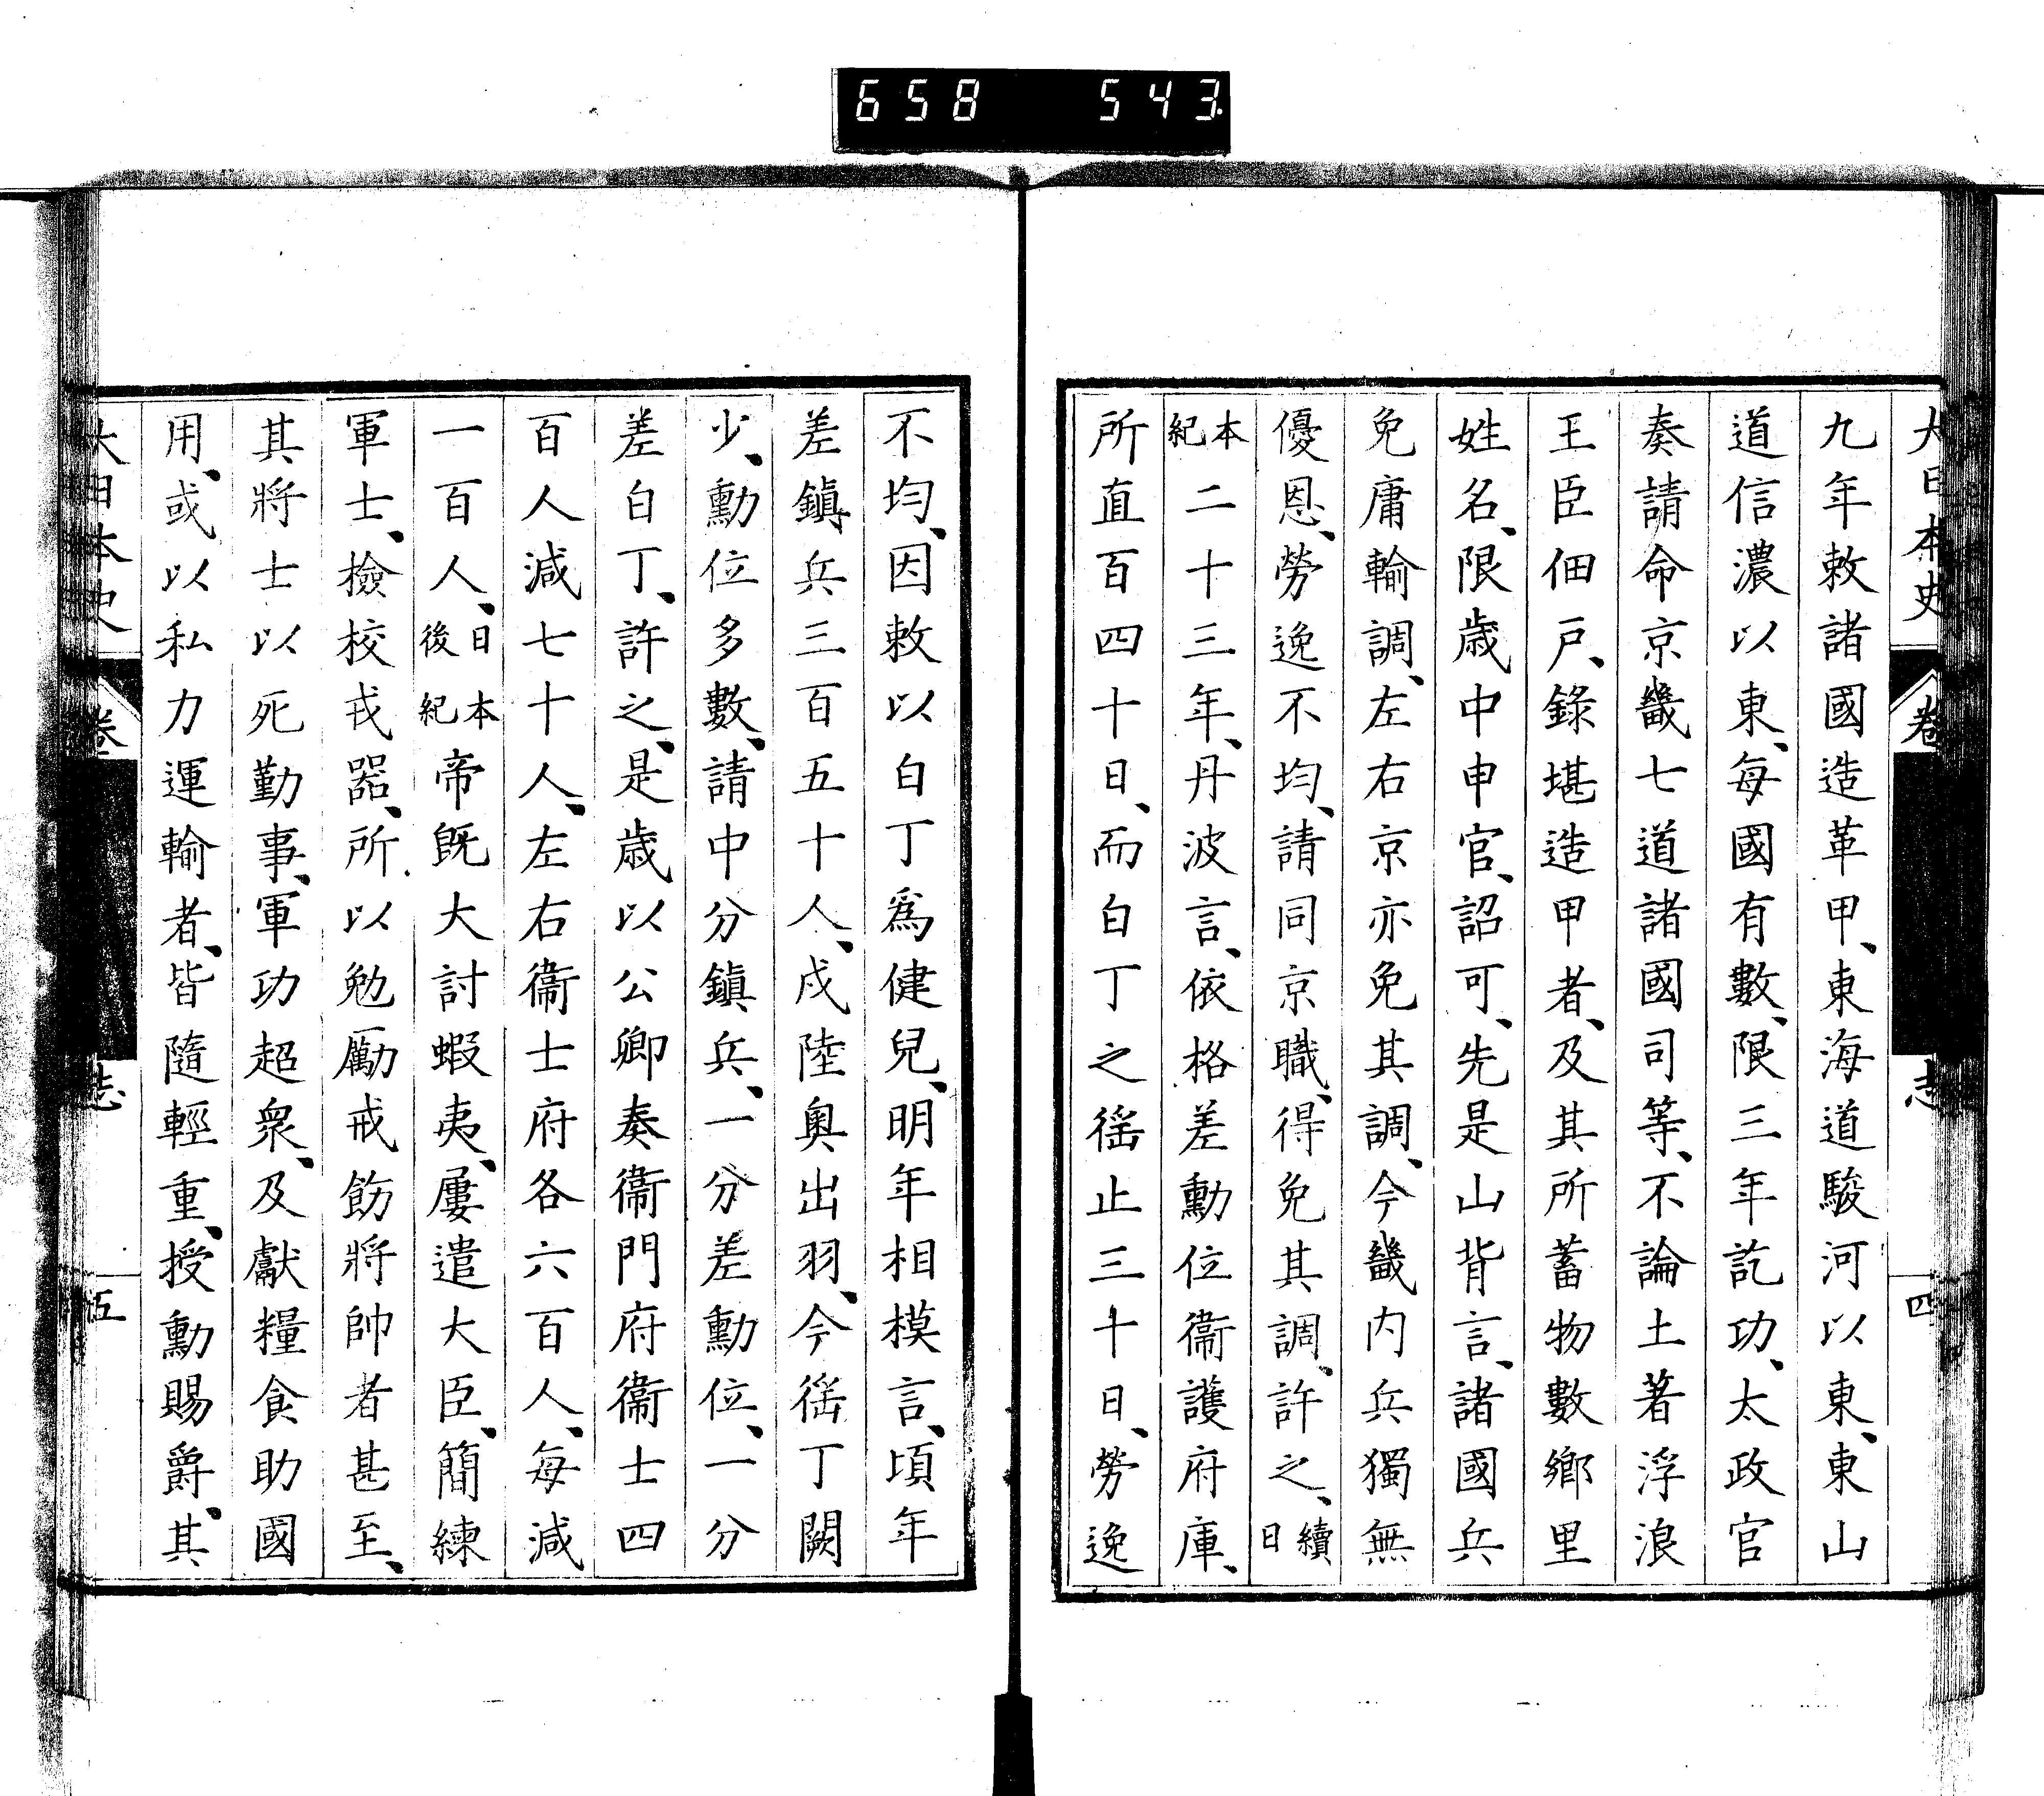 658 543
大日本史 卷 志 四
九年敕諸國造革甲、東海道駿河以東、東山
道信濃以東、每國有數、限三年訖功、太政官
奏請命京畿七道諸國司等、不論土著浮浪
王臣佃戶、錄堪造甲者、及其所蓄物數鄉里
姓名、限歲中申官、詔可、先是山背言、諸國兵
免庸輸調、左右京亦免其調、今畿內兵獨無
優恩、勞逸不均、請同京職、得免其調、許之、續日
本紀二十三年、丹波言、依格差勳位衞護府庫、
所直百四十日、而白丁之徭止三十日、勞逸
不均、因敕以白丁爲健兒、明年相模言、頃年
差鎭兵三百五十人、戍陸奧出羽、今徭丁闕
少、勳位多數、請中分鎭兵、一分差勳位、一分
差白丁、許之、是歲以公卿奏衞門府衞士四
百人減七十人、左右衞士府各六百人、每減
一百人、日本後紀帝旣大討蝦夷、屢遣大臣、簡練
軍士、檢校戎器、所以勉勵戒飭將帥者甚至、
其將士以死勤事、軍功超衆、及獻糧食助國
用、或以私力運輸者、皆隨輕重、授勳賜爵、其
大日本史 卷 志 五